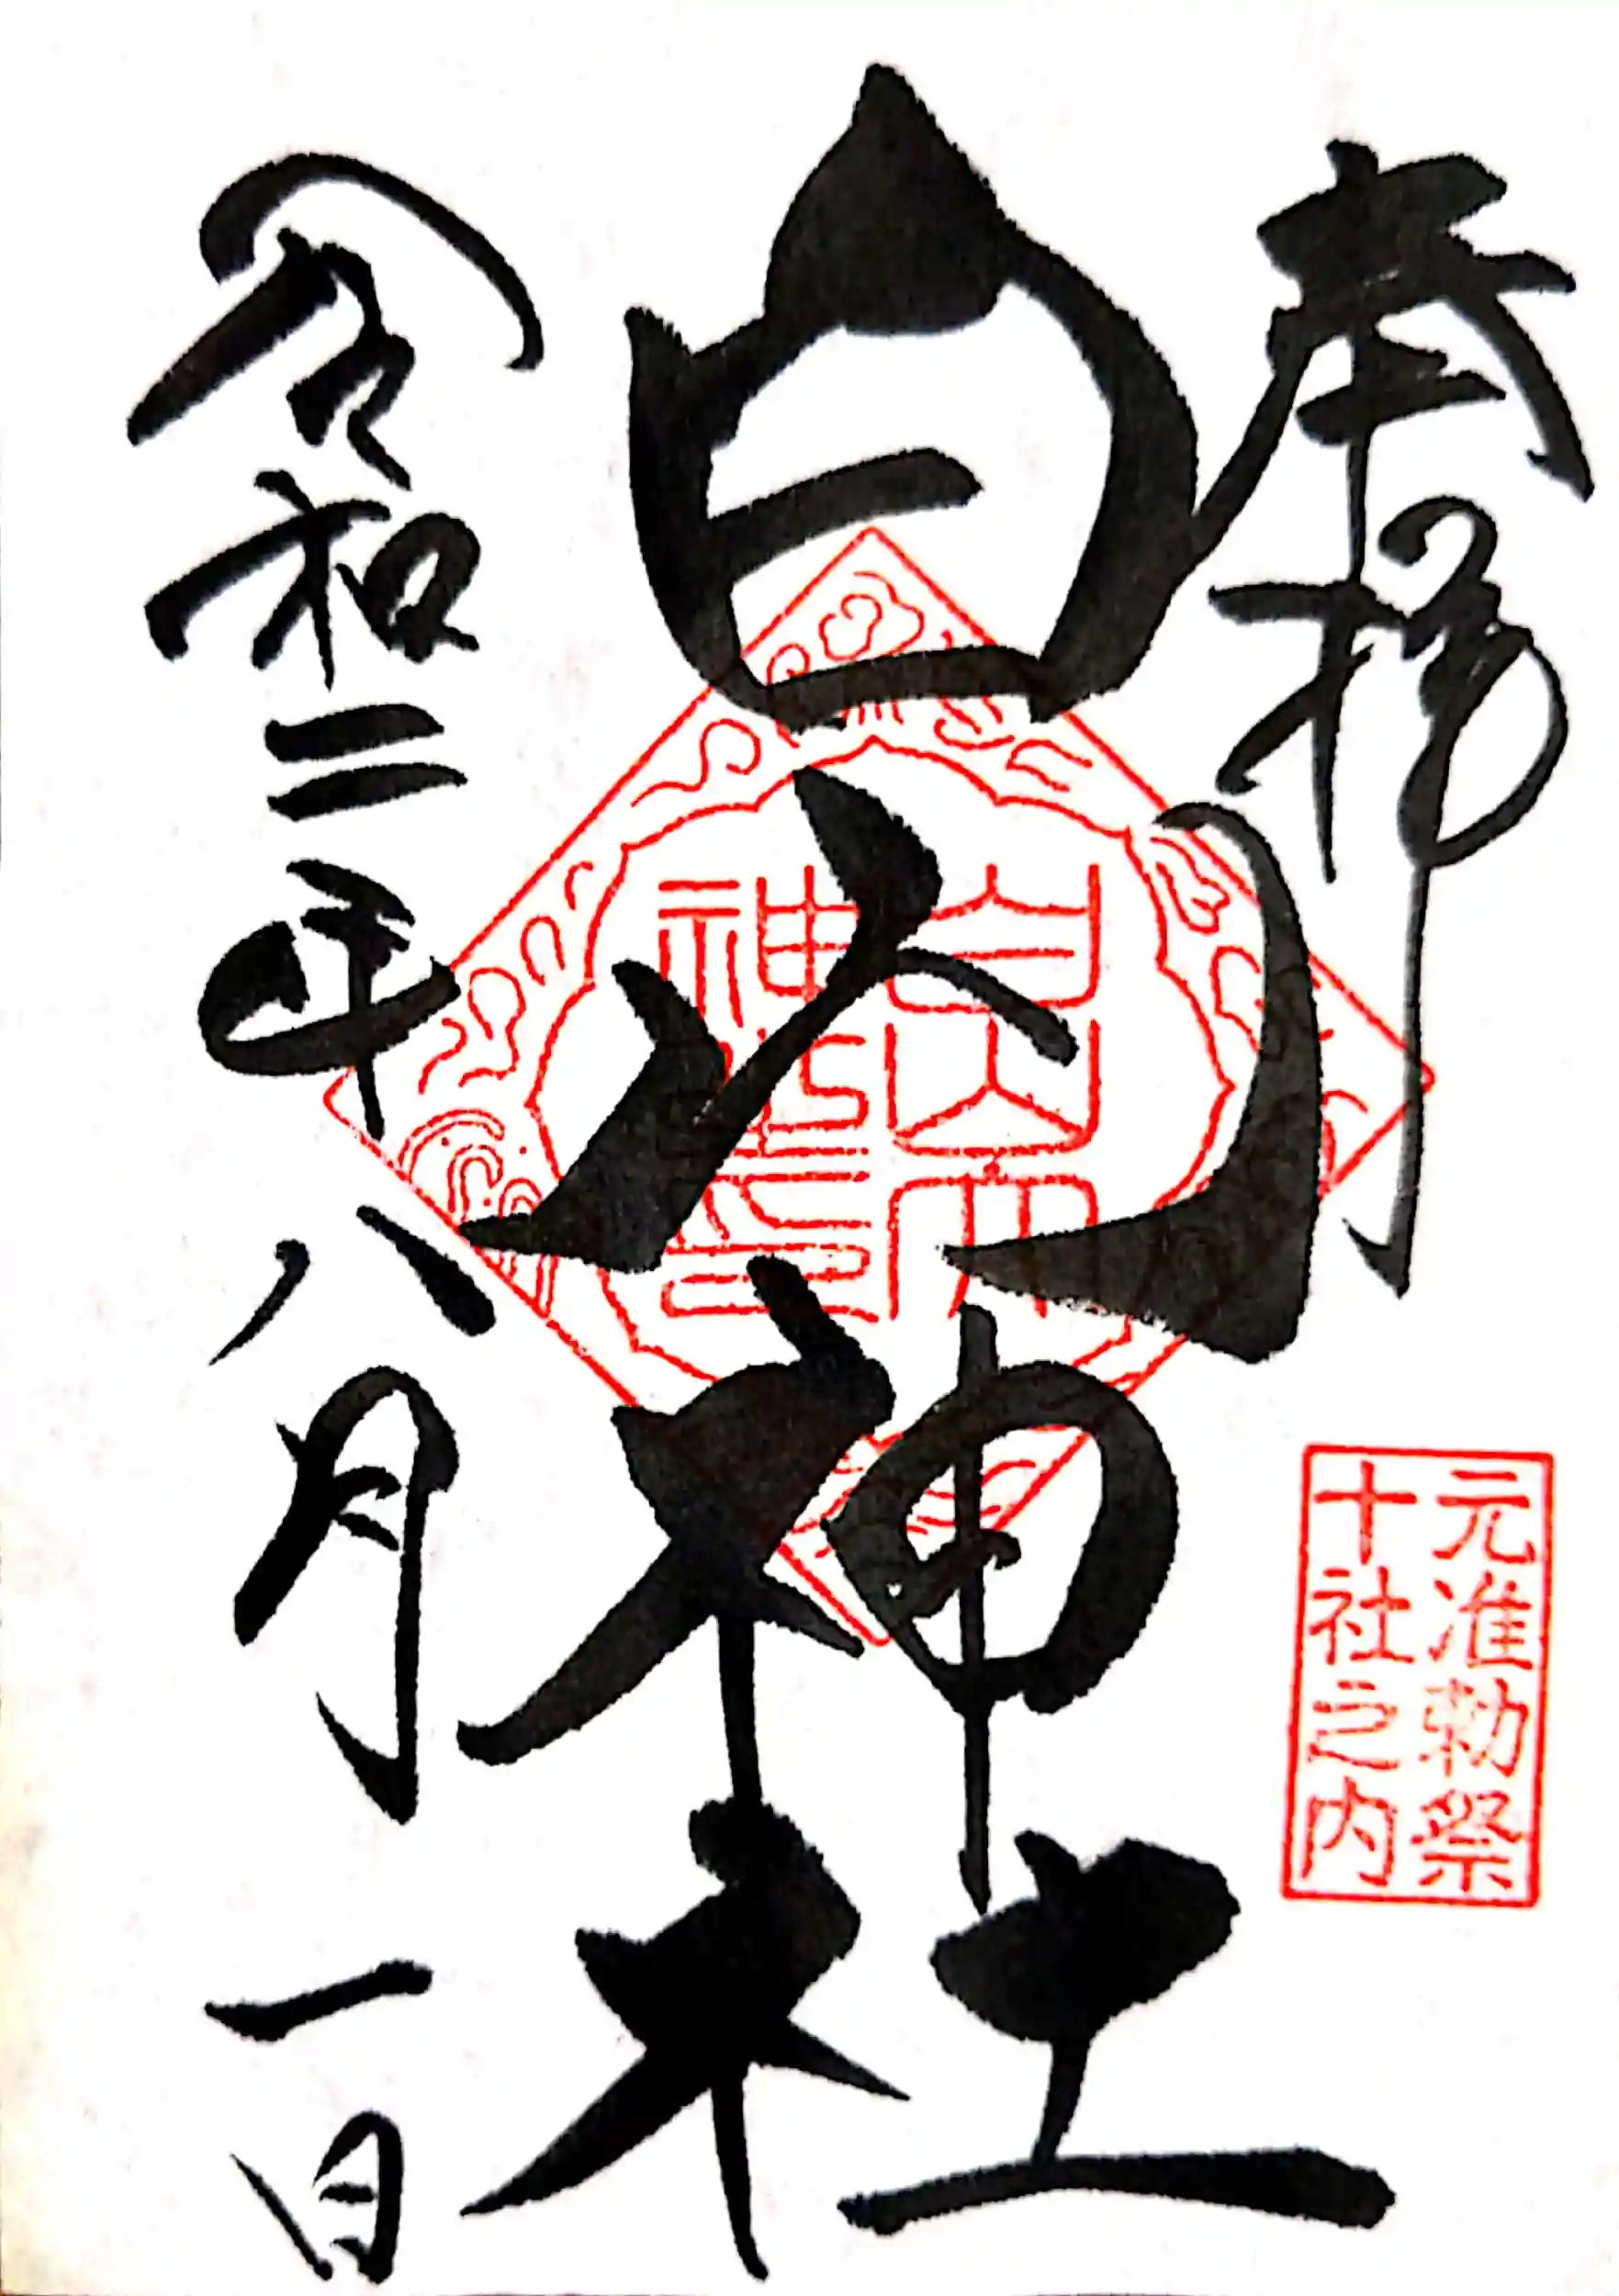 奉拝
元准勅祭
十社之内
白山神社
白山
神
令和二年八月一日